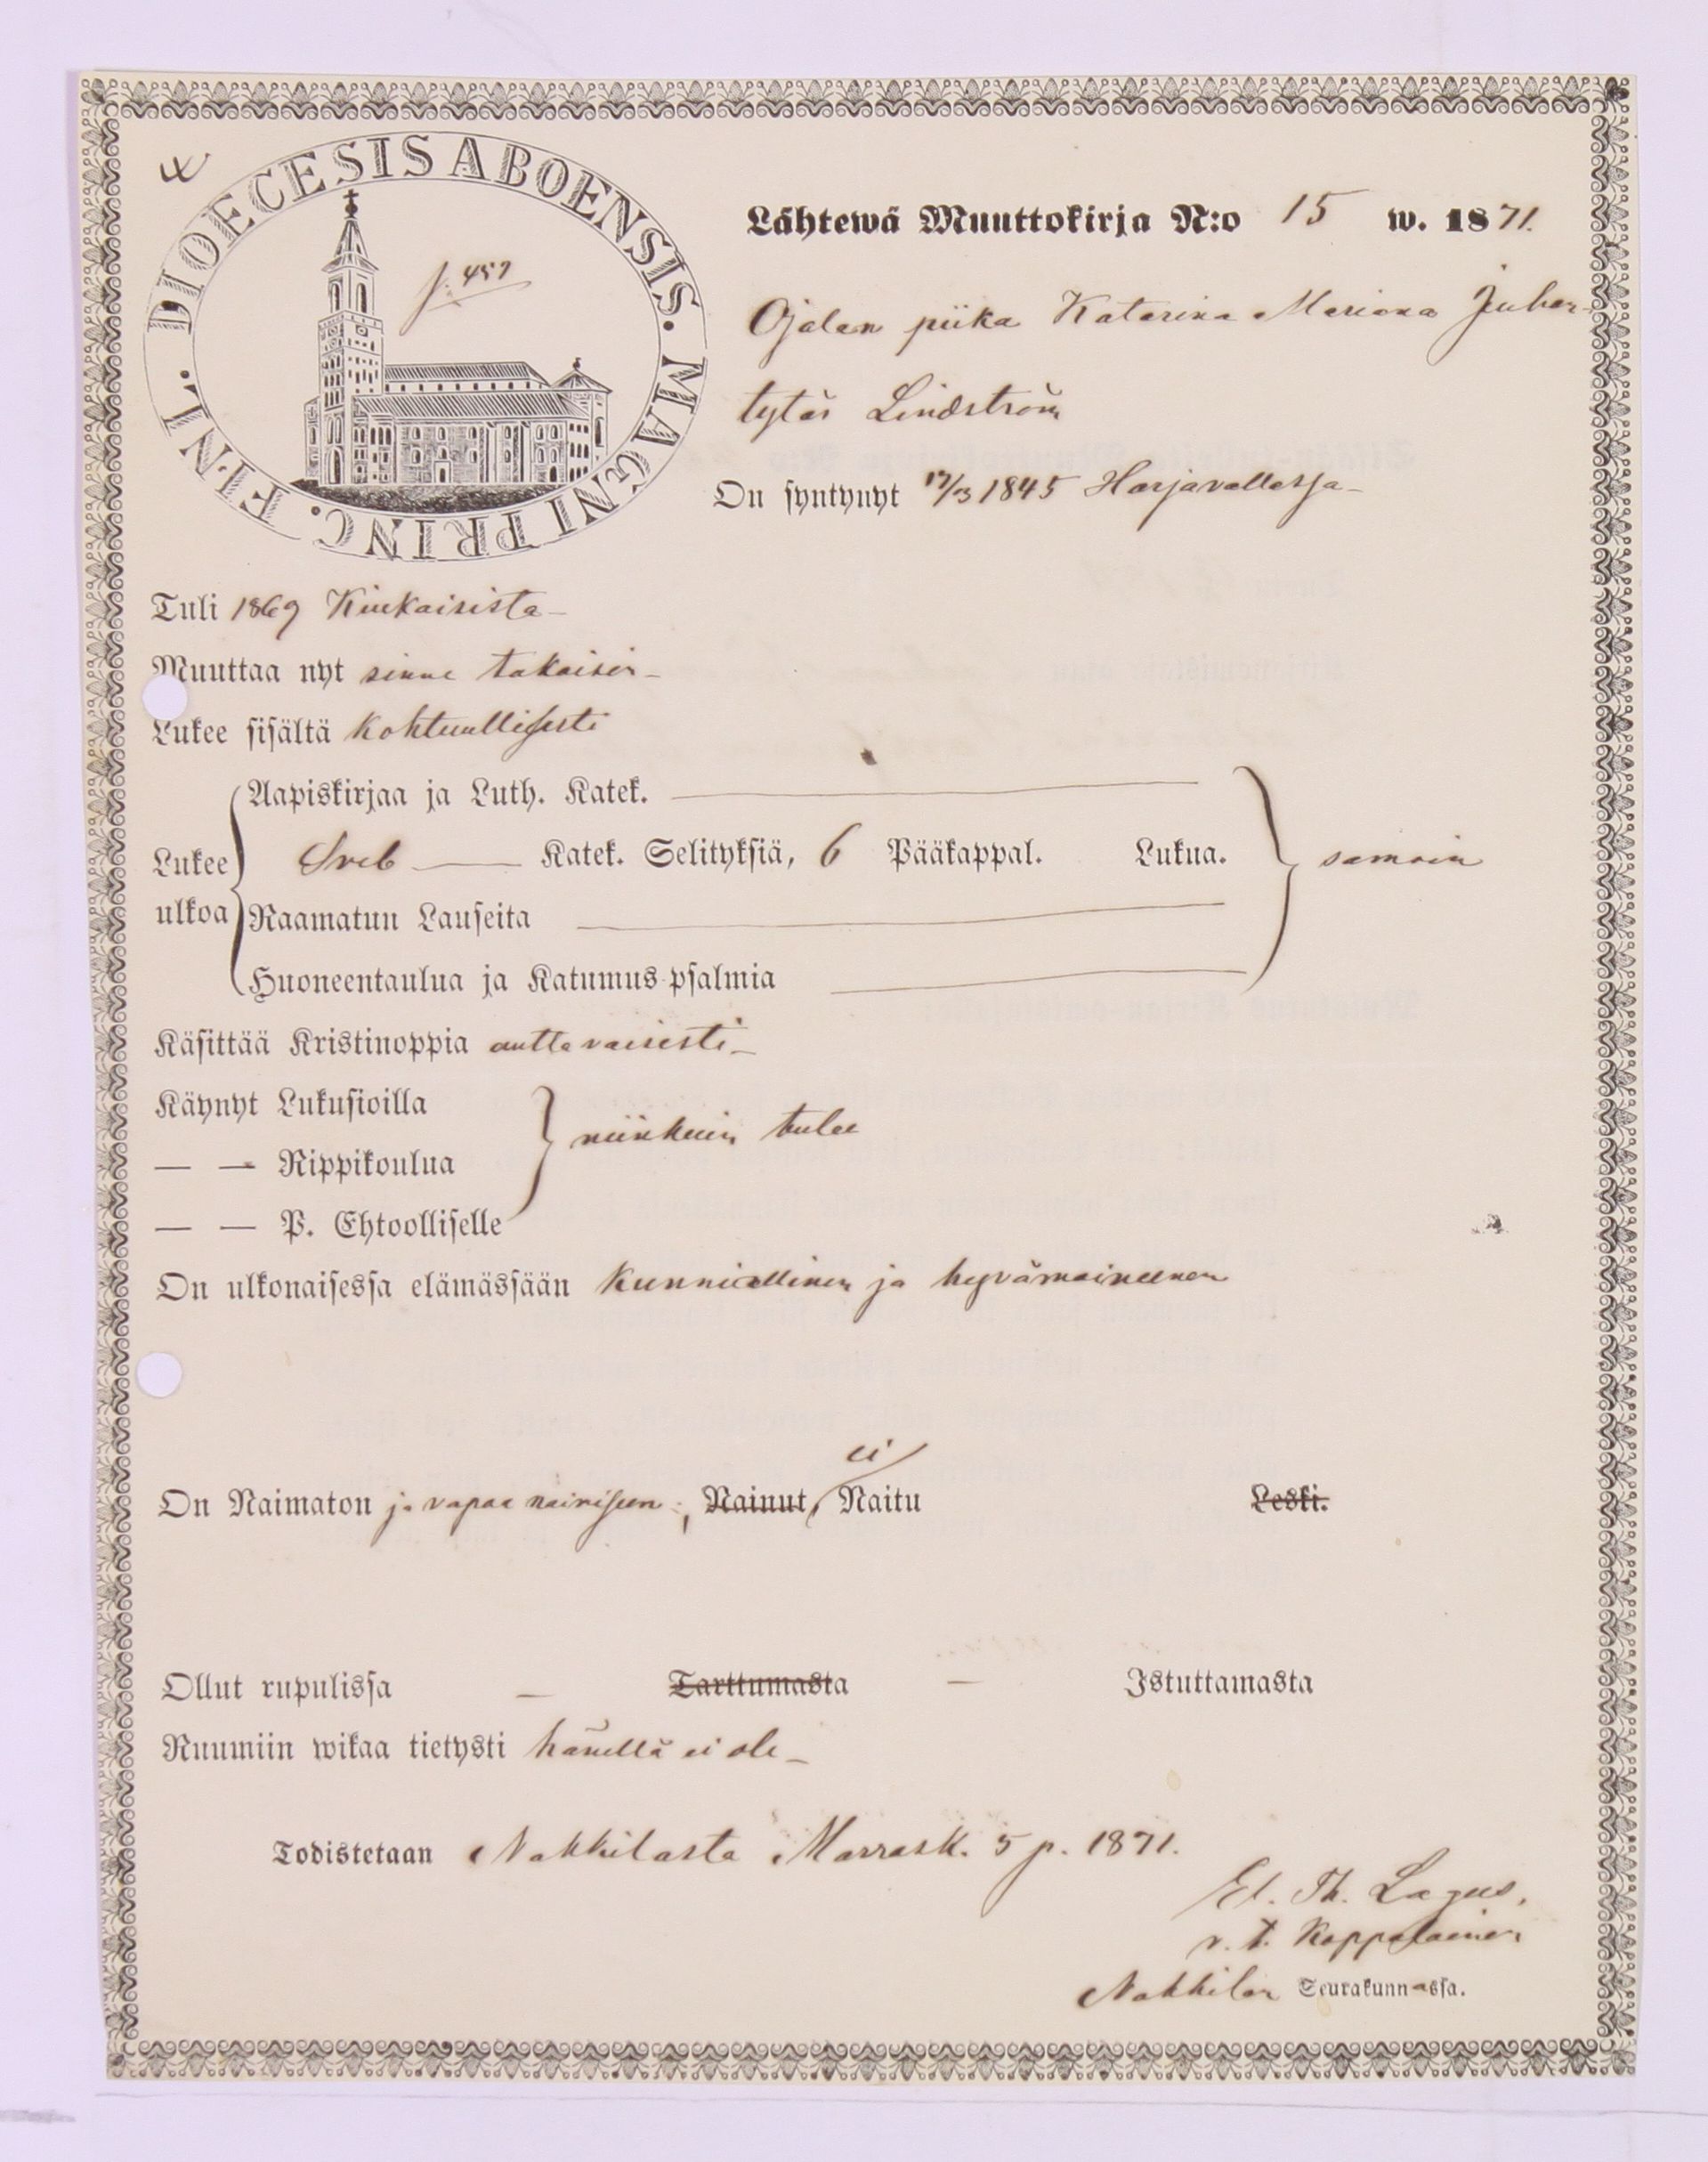 DIOECESIS ABOENSIS. MAGNI PRINC. FINL.
f. 457
Lähtewä Muuttokirja N:o 15 w. 1871.
Ojalan piika Katarina Mariana Juhan-
tytär Lindström
On syntynyt 17/3 1845 Harjavallassa
Tuli 1869 Kiukaisista
Muuttaa nyt sinne takaisin
Lukee sisältä kohtuullisesti
Aapiskirjaa ja Luth. Katek.
Lukee Sveb Katek. Selityksiä, 6 Pääkappal. Lukua. samoin
ulkoa Raamatun Lauseita
Huoneentaulua ja Katumus-psalmia
Käsittää Kristinoppia auttavaisesti
Käynyt Lukusioilla
niinkuin tulee
— — Rippikoulua
— — P. Ehtoolliselle
On ulkonaisessa elämässään kunniallinen ja hyvämaineinen
ei
On Naimaton ja vapaa naimiseen, Nainut, Naitu Leski.
Ollut rupulissa — Tarttumasta — Istuttamasta
Ruumiin wikaa tietysti hänellä ei ole
Todistetaan Nakkilasta Marrask. 5 p. 1871.
El. Th. Lagus,
v. t. Kappalainen
Nakkilan Seurakunnassa.